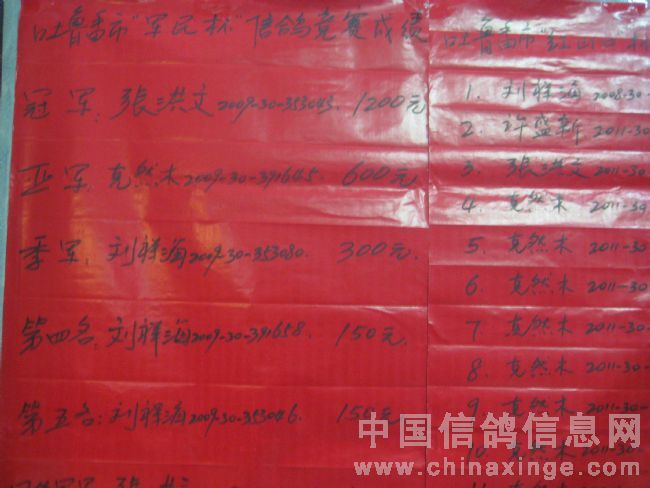 吐鲁番市"军民杯"信鸽竞赛成绩
冠军:張洪文2009-30-353043. 1200元
亚军:克然木2009-30-391645. 600元
季军:刘祥海2009-30-353080. 300元
第四名:刘祥海2009-30-391658. 150元
第五名:刘祥海2009-30-353046. 150元
吐鲁番市"红山
1. 刘祥海 2008-30-
2. 许盛新 2011-30
3. 張洪文 2011-30
4. 克然木 2011-30
5. 克然木 2011-30
6. 克然木 2011-30
7. 克然木 2011-30
8. 克然木 2011-30-
9. 克然木 2011-30
10. 克然木 2011-30
中国信鸽信息网
www.chinaxinge.com